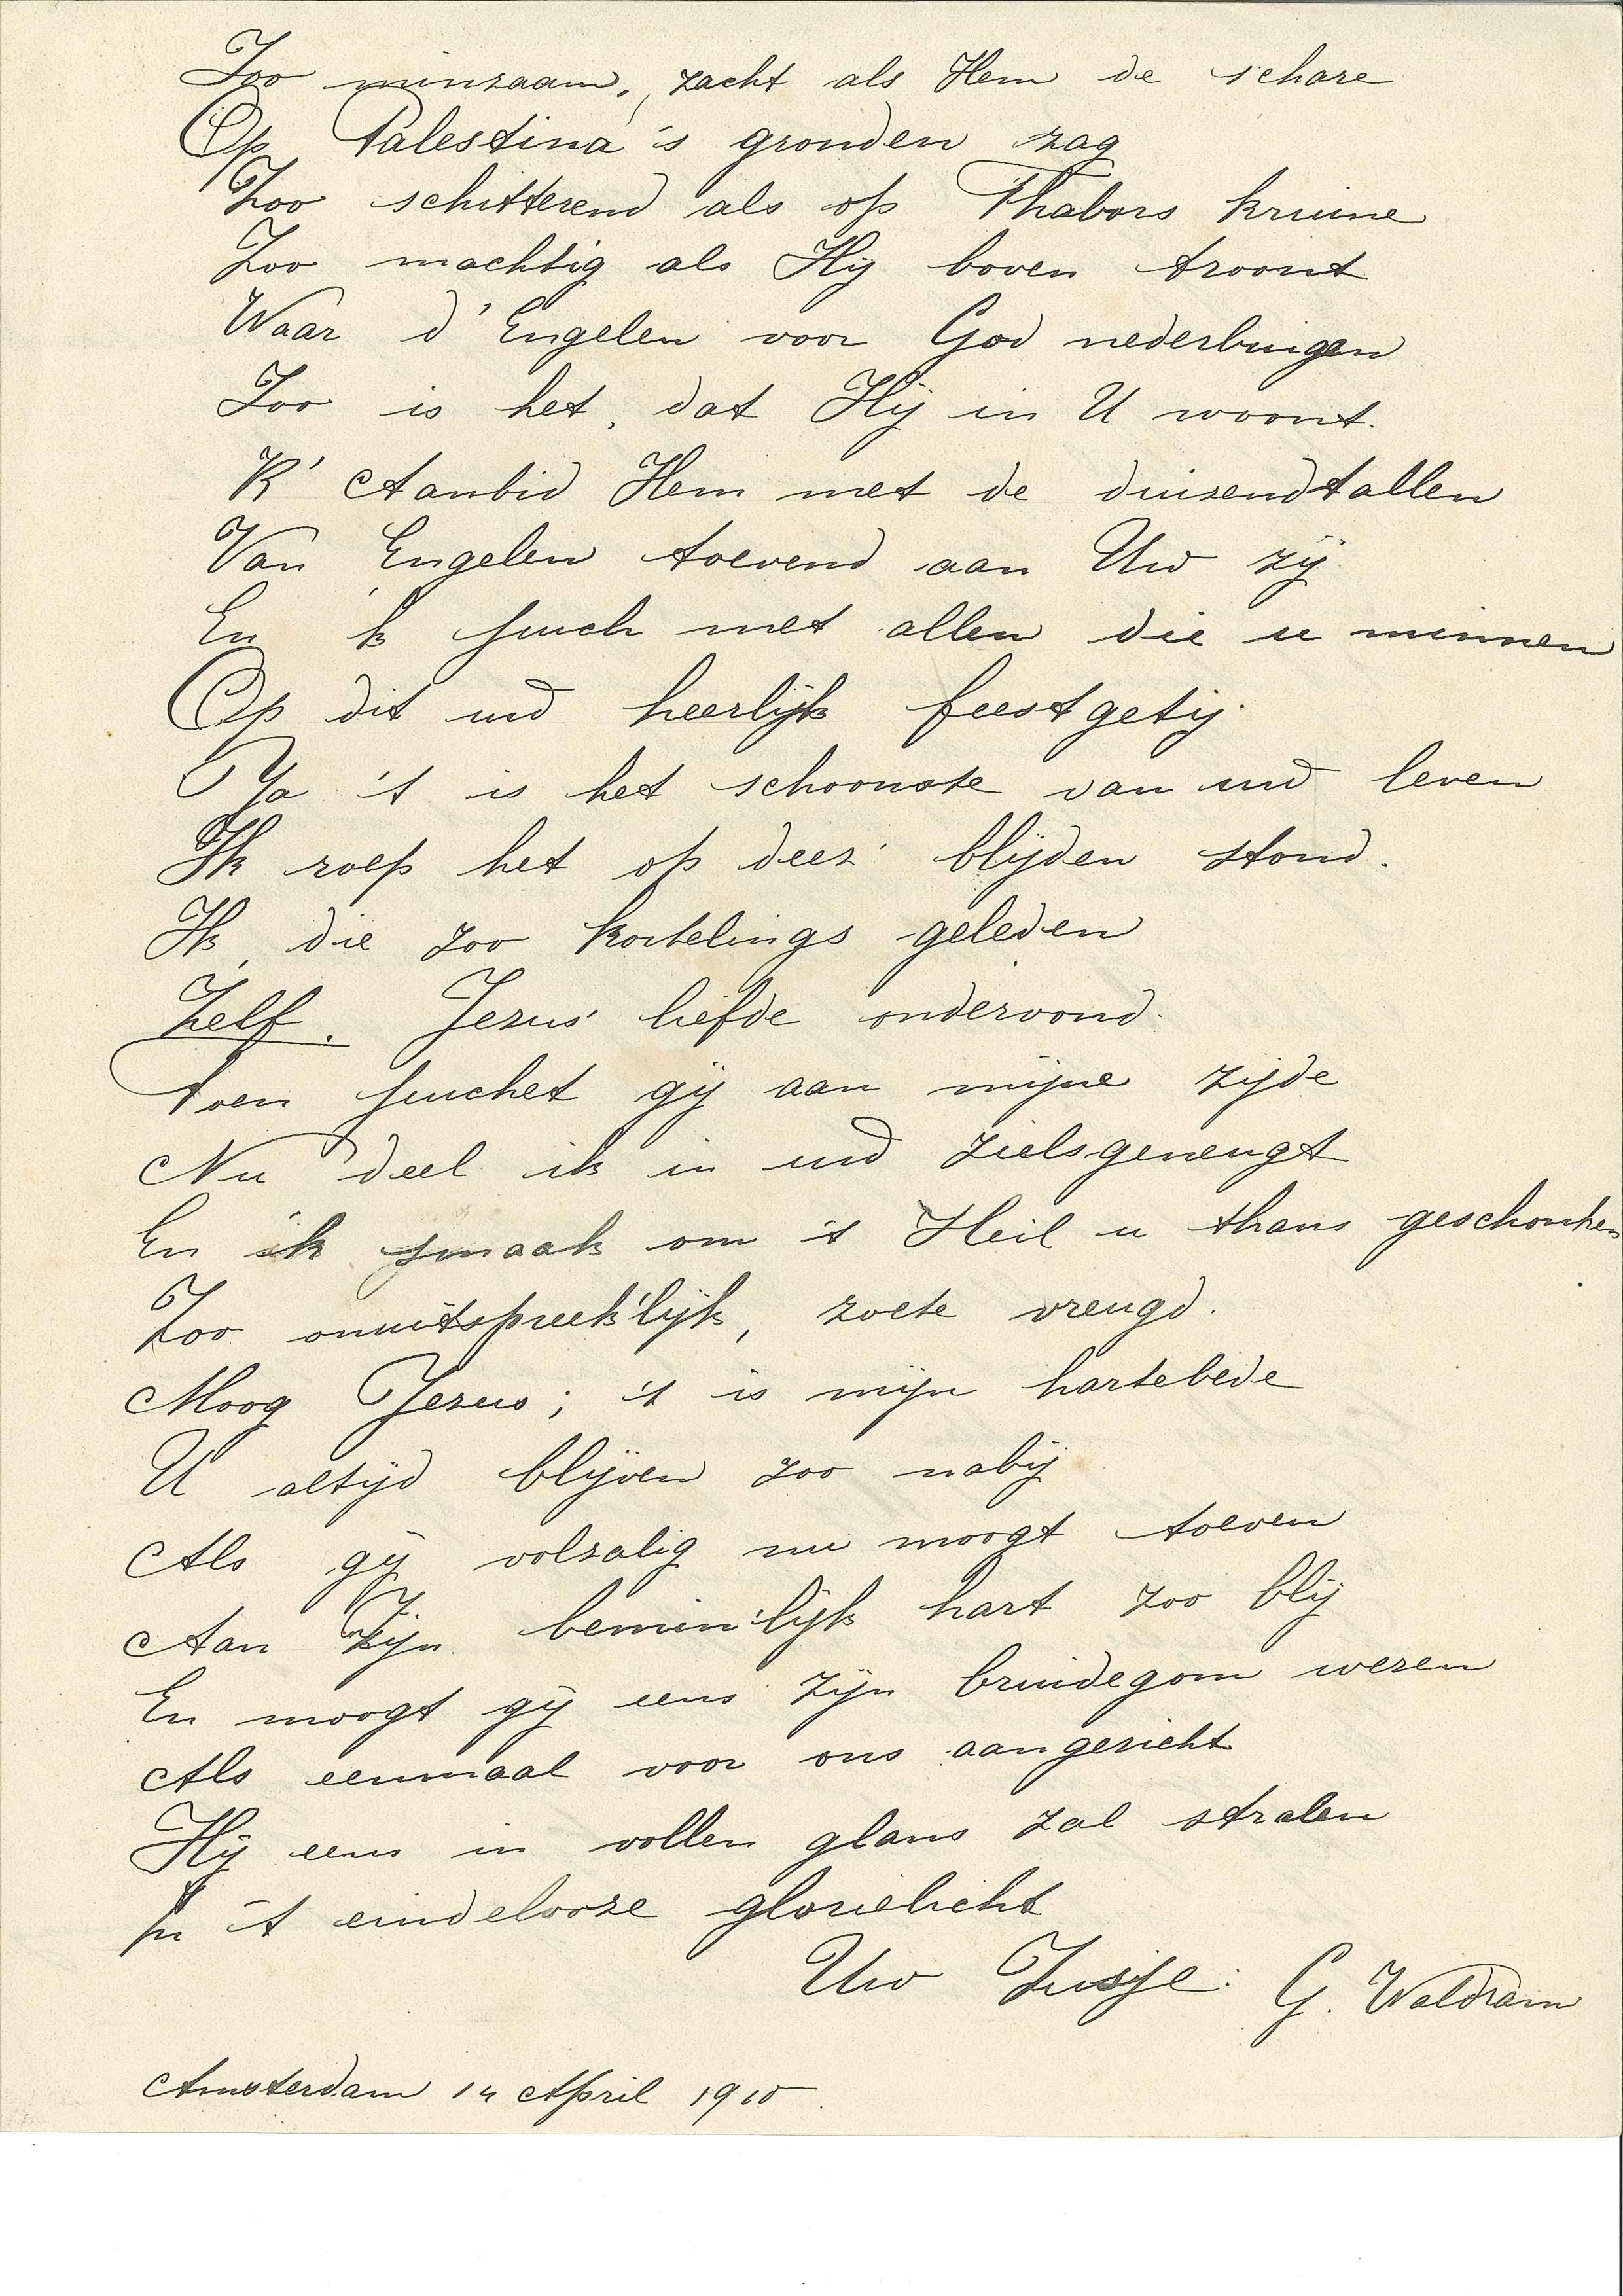 Zoo minzaam, zacht als Hem de schare
Op Palestina's gronden zag
Zoo schitterend als op Thabors kruine
Zoo machtig als Hij boven troont
Waar d'Engelen voor God nederbuigen
Zoo is het, dat Hij in U woont.
K' Aanbid Hem met de duizendtallen
Van Engelen toevend aan Uw zij
En 'k juich met allen die u minnen
Op dit uw heerlijk feestgetij.
Ja 't is het schoonste van uw leven
Ik roep het op deez' blijden stond.
Ik, die zoo kortelings geleden
Zelf. Jezus' liefde ondervond.
Toen juichet gij aan mijne zijde
Nu deel ik in uw zielsgeneugt
En ik smaak om 't Heil u thans geschonken
Zoo onuitspreek'lijk, zoete vreugd.
Moog Jezus; 't is mijn hartebede
U altijd blijven zoo nabij
Als gij volzalig nu moogt toeven
Aan Zijn bemin'lijk hart zoo blij
En moogt gij eens zijn bruidegom wezen
Als eenmaal voor ons aangezicht
Hij eens in vollen glans zal stralen
In 't eindelooze glorielicht
Uw Zusje: G. Waldram
Amsterdam 14 April 1910.